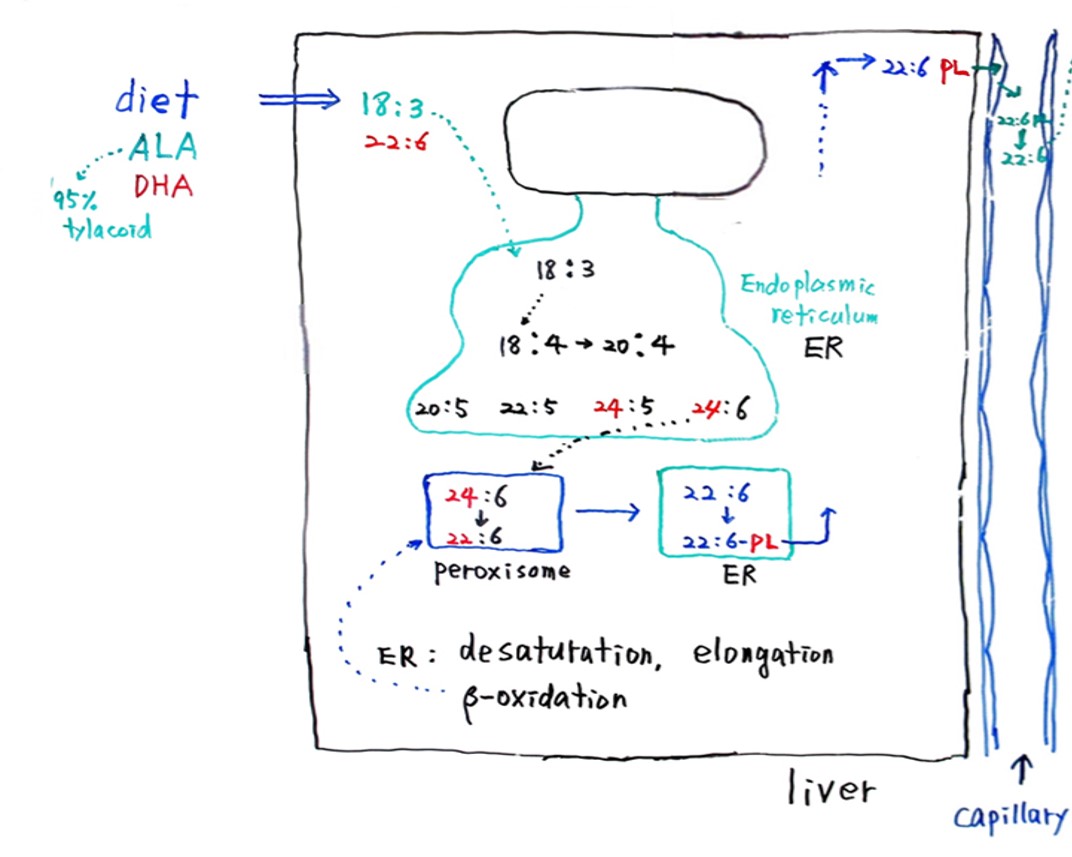 diet
ALA
DHA
95%
tylacoid
18:3
22:6
22:6 PL
22:6 PL
22:6
18:3
18:4 → 20:4
Endoplasmic
reticulum
ER
20:5 22:5 24:5 24:6
24:6
22:6
peroxisome
22:6
22:6-PL
ER
ER: desaturation, elongation
β-oxidation
liver
capillary